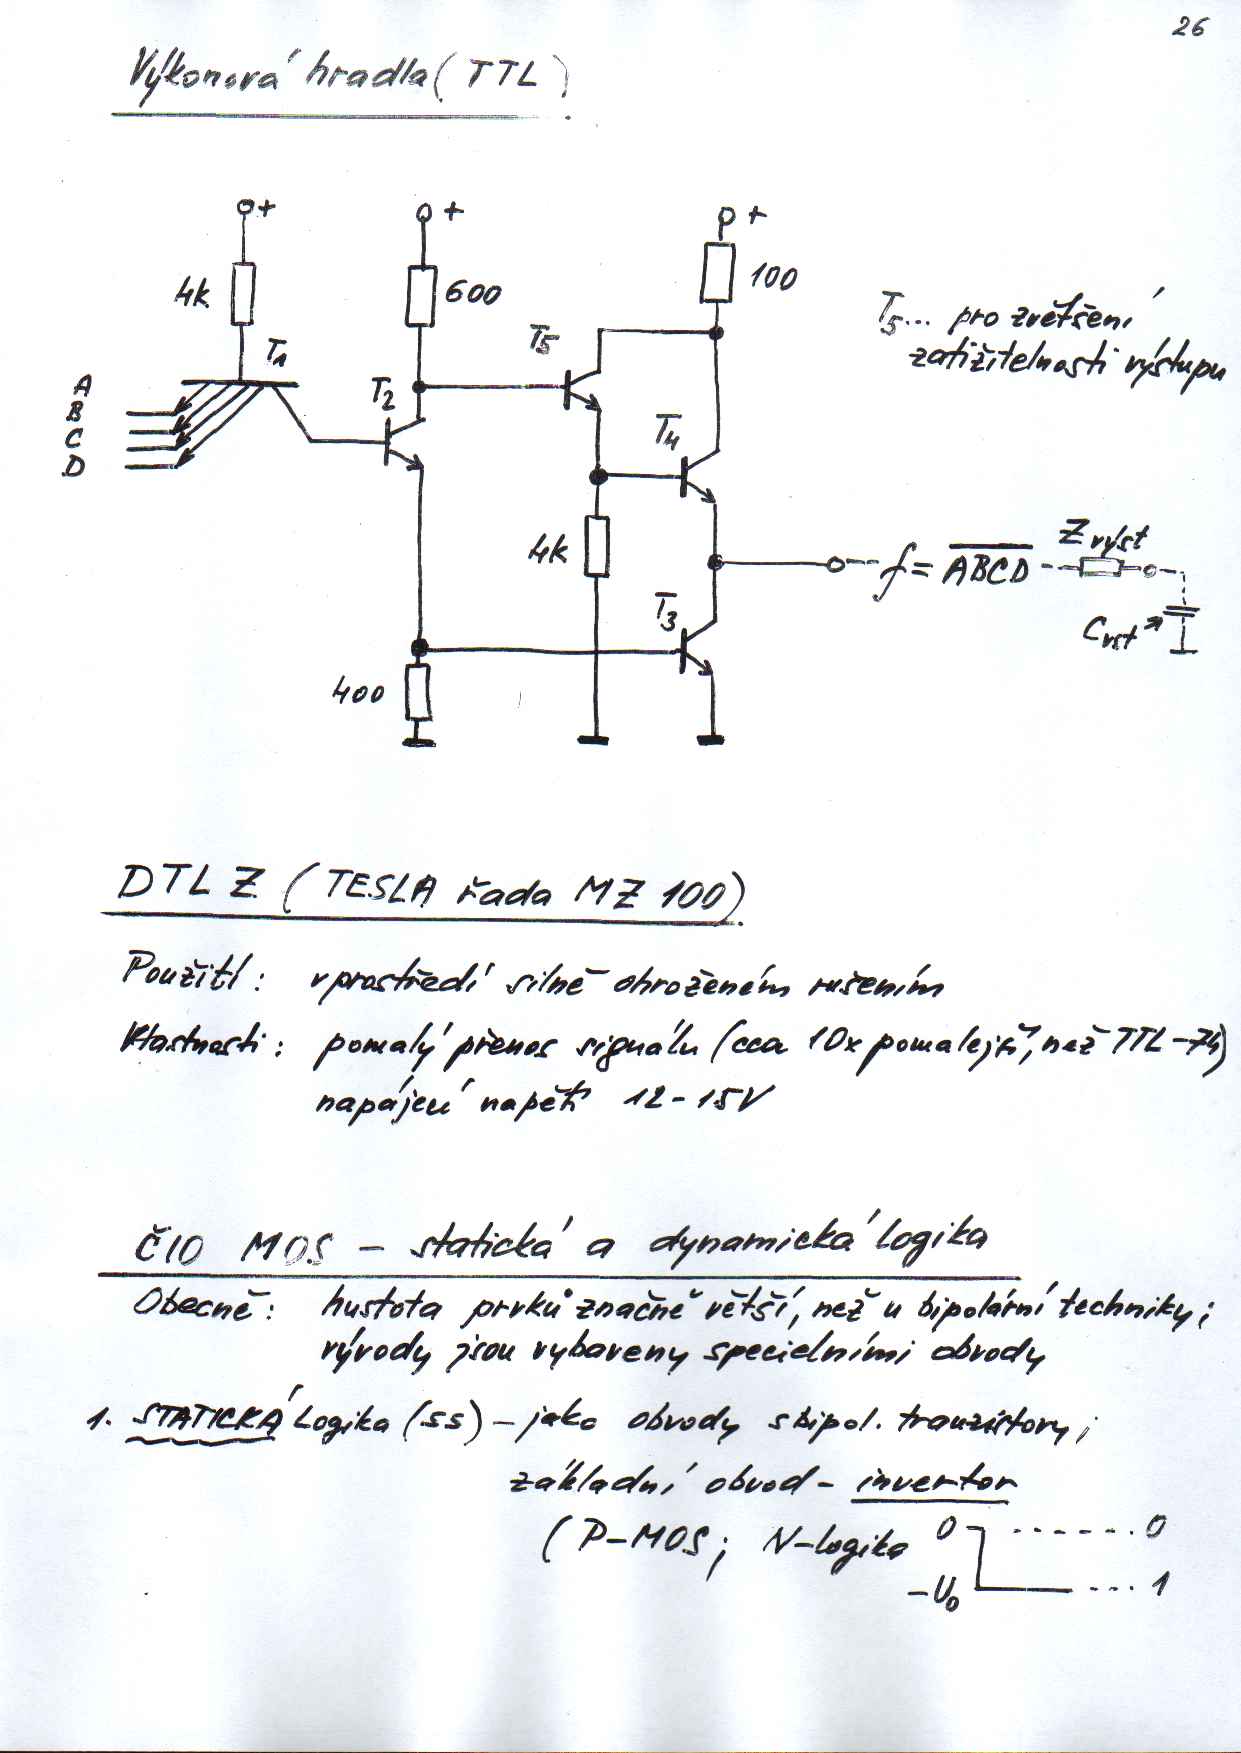 26
Výkonová hradla (TTL)
+
+
+
4k
600
100
T1
T2
T5
T4
T3
T5... pro zvětšení
zatížitelnosti výstupu
A
B
C
D
4k
400
f = \overline{ABCD}
Zvýst
Cvst
DTL Z (TESLA řada MZ 100)
Použití: v prostředí silně ohroženém rušením
Vlastnosti: pomalý přenos signálu (cca 10x pomalejší, než TTL-74)
napájecí napětí 12-15V
ČIO MOS - statická a dynamická logika
Obecně: hustota prvků značně větší, než u bipolární techniky;
vývody jsou vybaveny specielními obvody
1. STATICKÁ logika (SS) - jako obvody s bipol. tranzistory;
základní obvod - invertor
(P-MOS; N-logika 0 ------ 0
-U0 --- 1